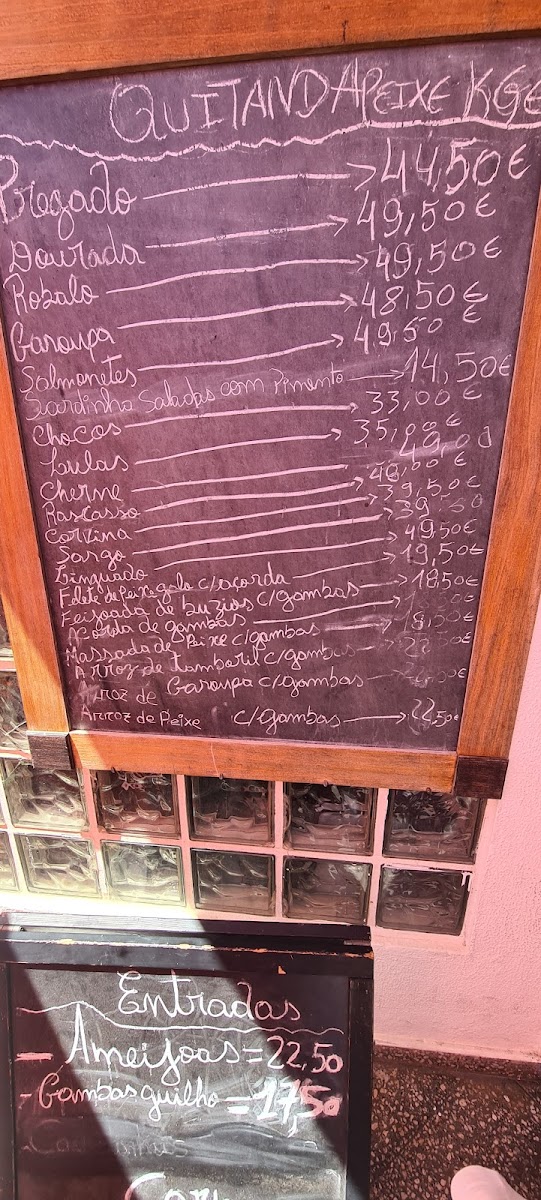 QUITANDA PEIXE KGE
Pregado 44,50€
Dourada 49,50€
Robalo 49,50€
Garoupa 48,50€
Salmonetes 49,50 €
Sardinha Saladas com Pimento 14,50€
Chocos 33,00€
Lulas 35,00€
Cherne 49,00
Rascasso 48,00€
Corvina 39,50€
Sargo 39
Linguado 49,50€
Filete de Peixe galo c/açorda 19,50€
Feijoada de buzios c/gambas 18,50€
Açorda de gambas
Massada de Peixe c/gambas 18,50
Arroz de tamboril c/gambas 22
Arroz de Garoupa c/gambas
Arroz de Peixe c/gambas 22,50€
Entradas
- Ameijoas = 22,50
- Gambas guilho = 17,50